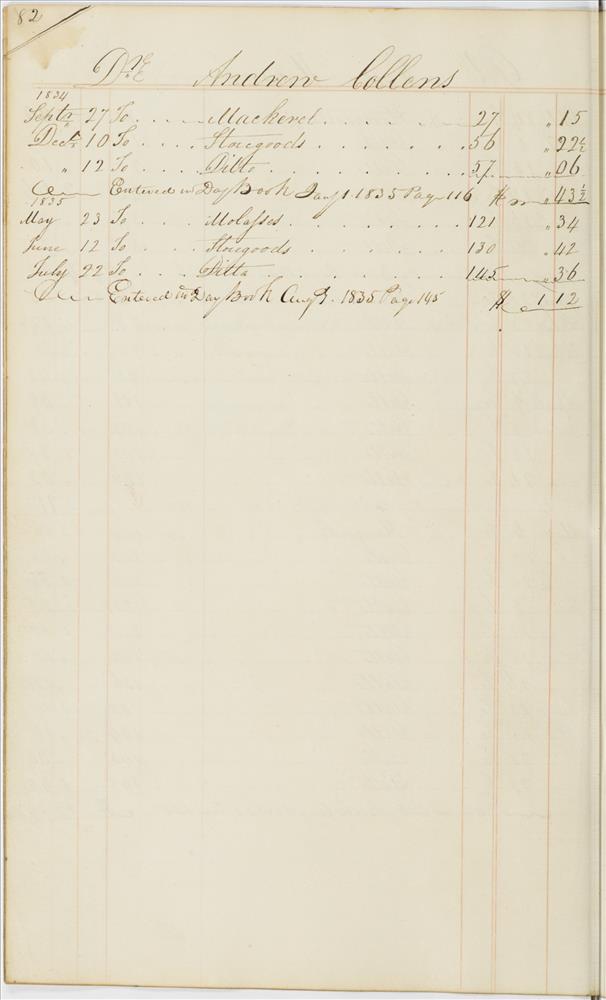 82
Dr Andrew Collens
1834
Septr 27 To . . . . Mackerel . . . . . 27 " 15
Decr 10 To . . . . Storegoods . . . . . . . 56 " 22½
" 12 To . . . . Ditto . . . . . . . . . 57 " 06
Entered in Day Book Jany 1 1835 Page 116 $ " 43½
1835
May 23 To . . . Molasses . . . . . . . . 121 " 34
June 12 To . . . Storegoods . . . . . . . 130 " 42
July 22 To . . . Ditto . . . . . . . . . 145 " 36
Entered in Day Book Augt 1835 Page 145 $ 1 12